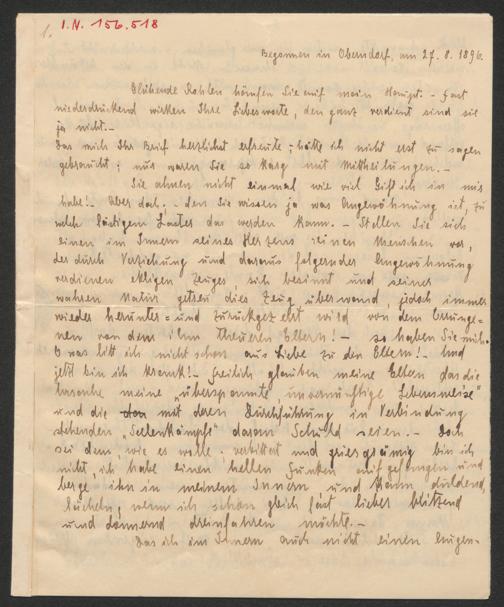 1. I.N. 156.518
Begonnen in Oberndorf, am 27. 8. 1896.
Glühende Kohlen häufen Sie auf mein Haupt. - Fast
niederdrückend wirken Ihre Liebesworte, den ganz verdient sind sie
ja nicht. -
Das mich Ihr Brief herzlichst erfreute, hätte ich nicht erst zu sagen
gebraucht; nur waren Sie so karg mit Mittheilungen. -
Sie ahnen nicht einmal wie viel Gift ich in mir
habe! - Aber doch. - den Sie wissen ja was Angewöhnung ist, zu
welch lästigem Laster das werden kann. - Stellen Sie sich
einen im Innern seines Herzens reinen Menschen vor,
der durch Verziehung und daraus folgender Angewöhnung
verdienen ekligen Zeuges, sich besinnt und seiner
wahren Natur getreu dies Zeug überwand, jedoch immer
wieder herunter= und zurückgezerrt wird von dem Errunge=
nen von den ihm theueren Eltern! - so haben Sie mich.
O was litt ich nicht schon aus Liebe zu den Eltern! - Und
jetzt bin ich krank! - freilich glauben meine Eltern das die
Ursache meine „überspannte, unvernünftige Lebensweise"
und die mit deren Durchführung in Verbindung
stehenden „Seelenkämpfe" daran Schuld seien. - Doch
sei dem, wie es wolle. verbittert und griesgrämig bin ich
nicht, ich habe einen hellen Funken aufgefangen und
berge ihn in meinem Innern und kann duldend
lächeln, wenn ich schon gleich fast lieber blitzend
und donnernd dreinfahren möchte. -
Das ich im Innern auch nicht einen Augen-